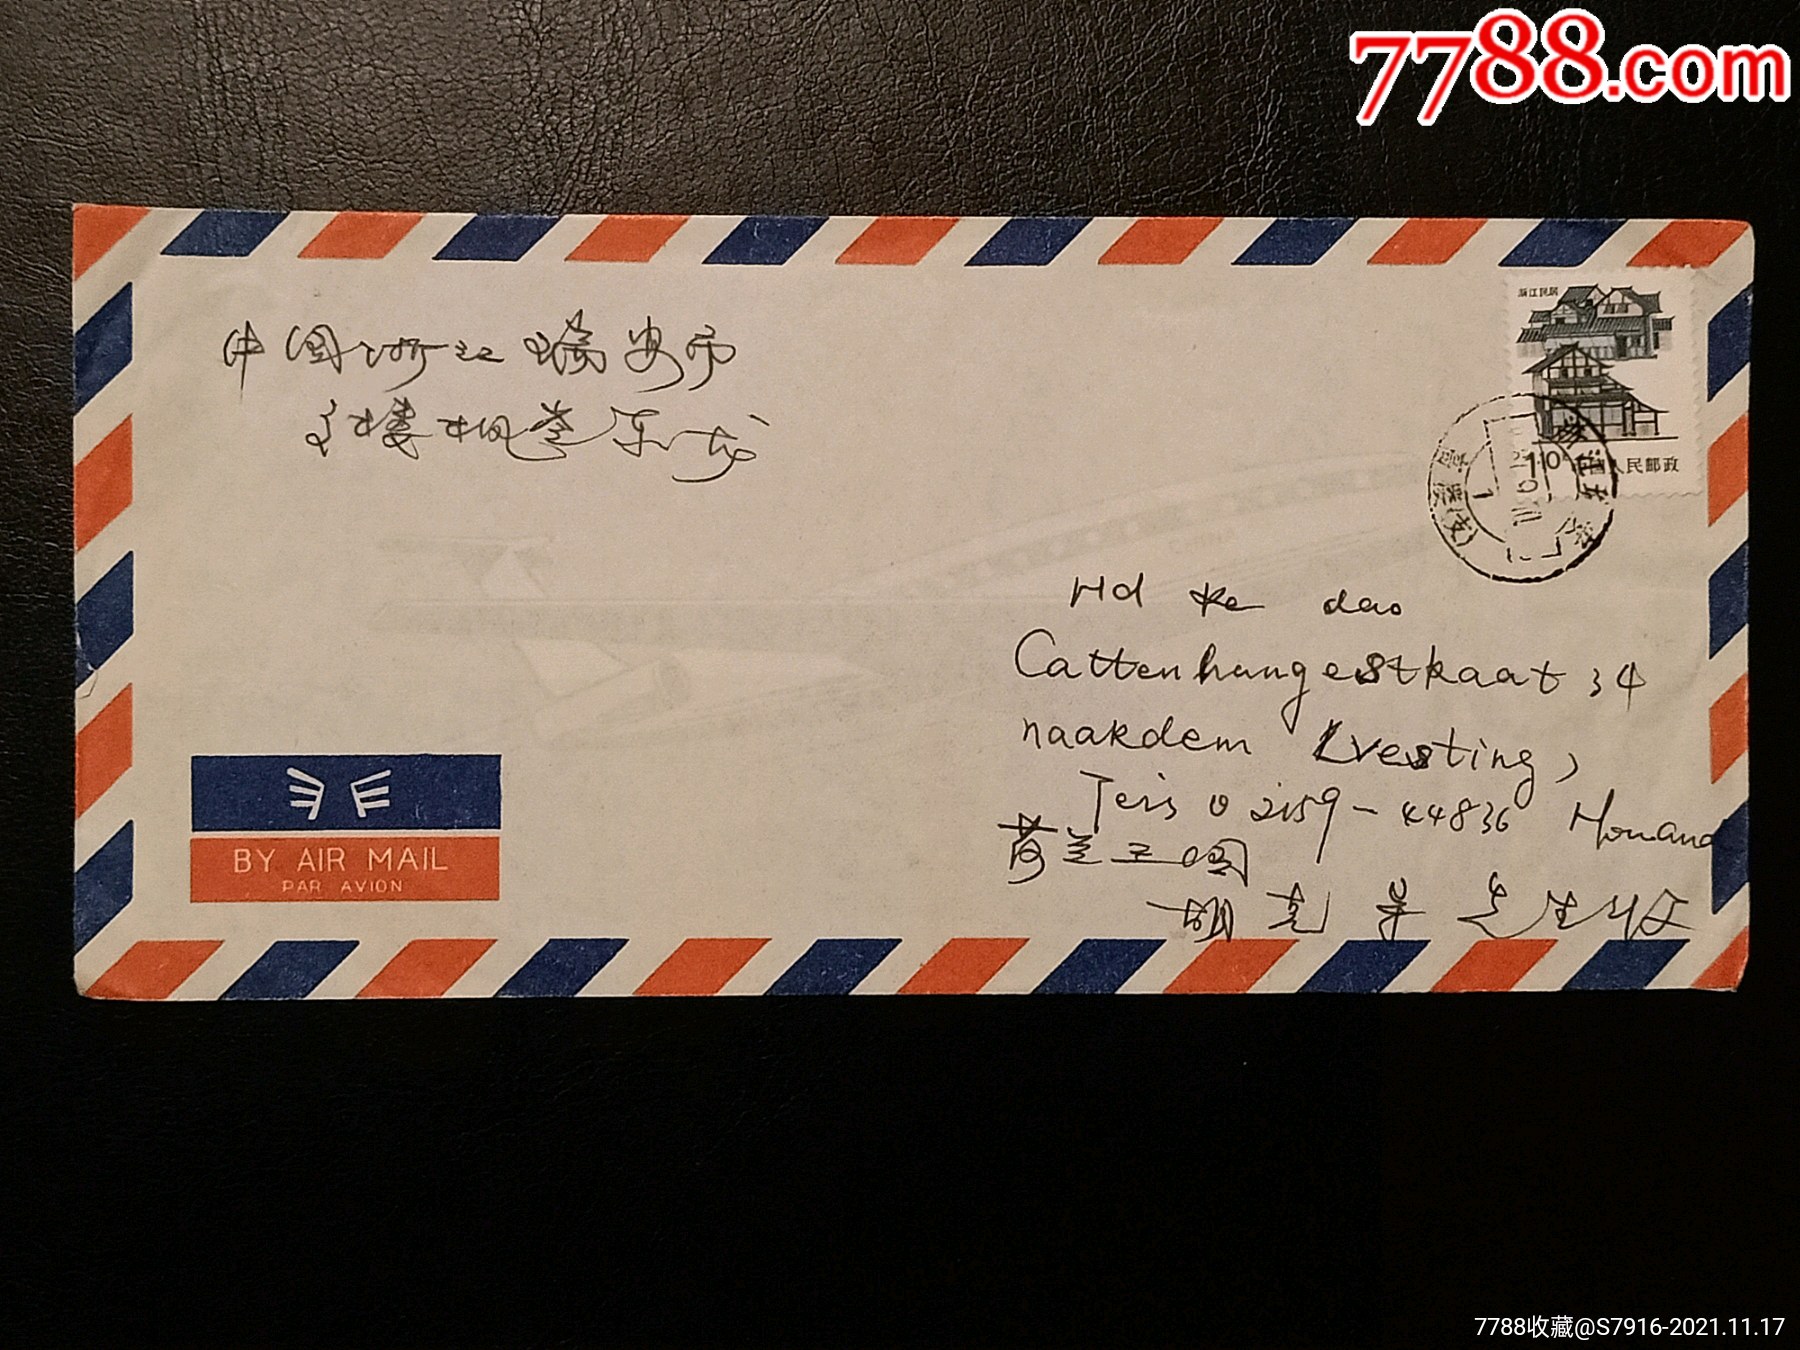 7788.com
中国浙江瑞安市
浙江民居
10
中国人民邮政
Hd ke dao
Cattenhangestraat 34
naakdem (vesting,
Teis 02159-44836 Honand
荷兰王国
胡克 先生收
BY AIR MAIL
PAR AVION
7788收藏@S7916-2021.11.17